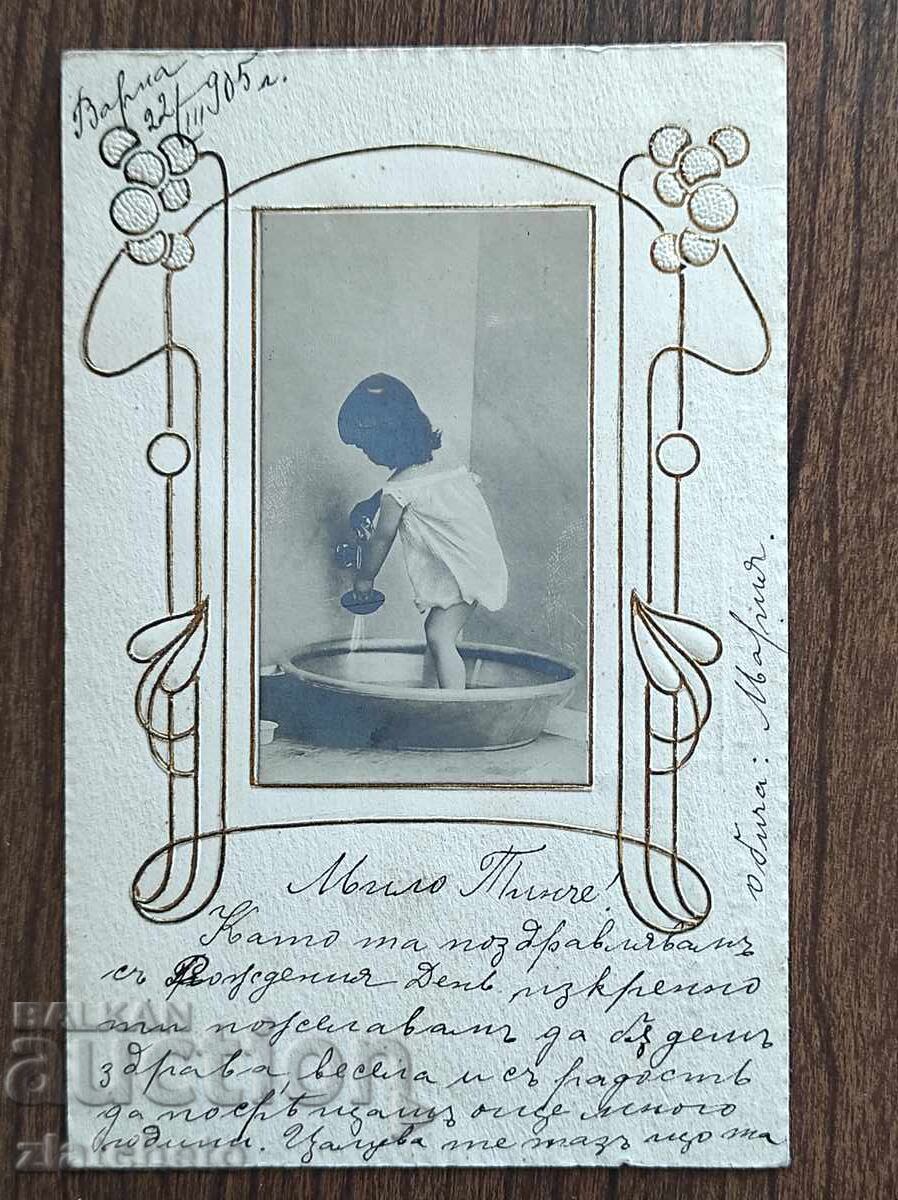 Варна
22/III 905 г.
Мило Тинче!
Като та поздравлявамъ
съ Рождения День, изкренно
ти пожелавамъ да бѫдешъ
здрава, весела и съ радость
да посрѣщашъ още много
години. Цалува те тазъ що та
обича: Мария.
BALKAN
auction
zlatcharo